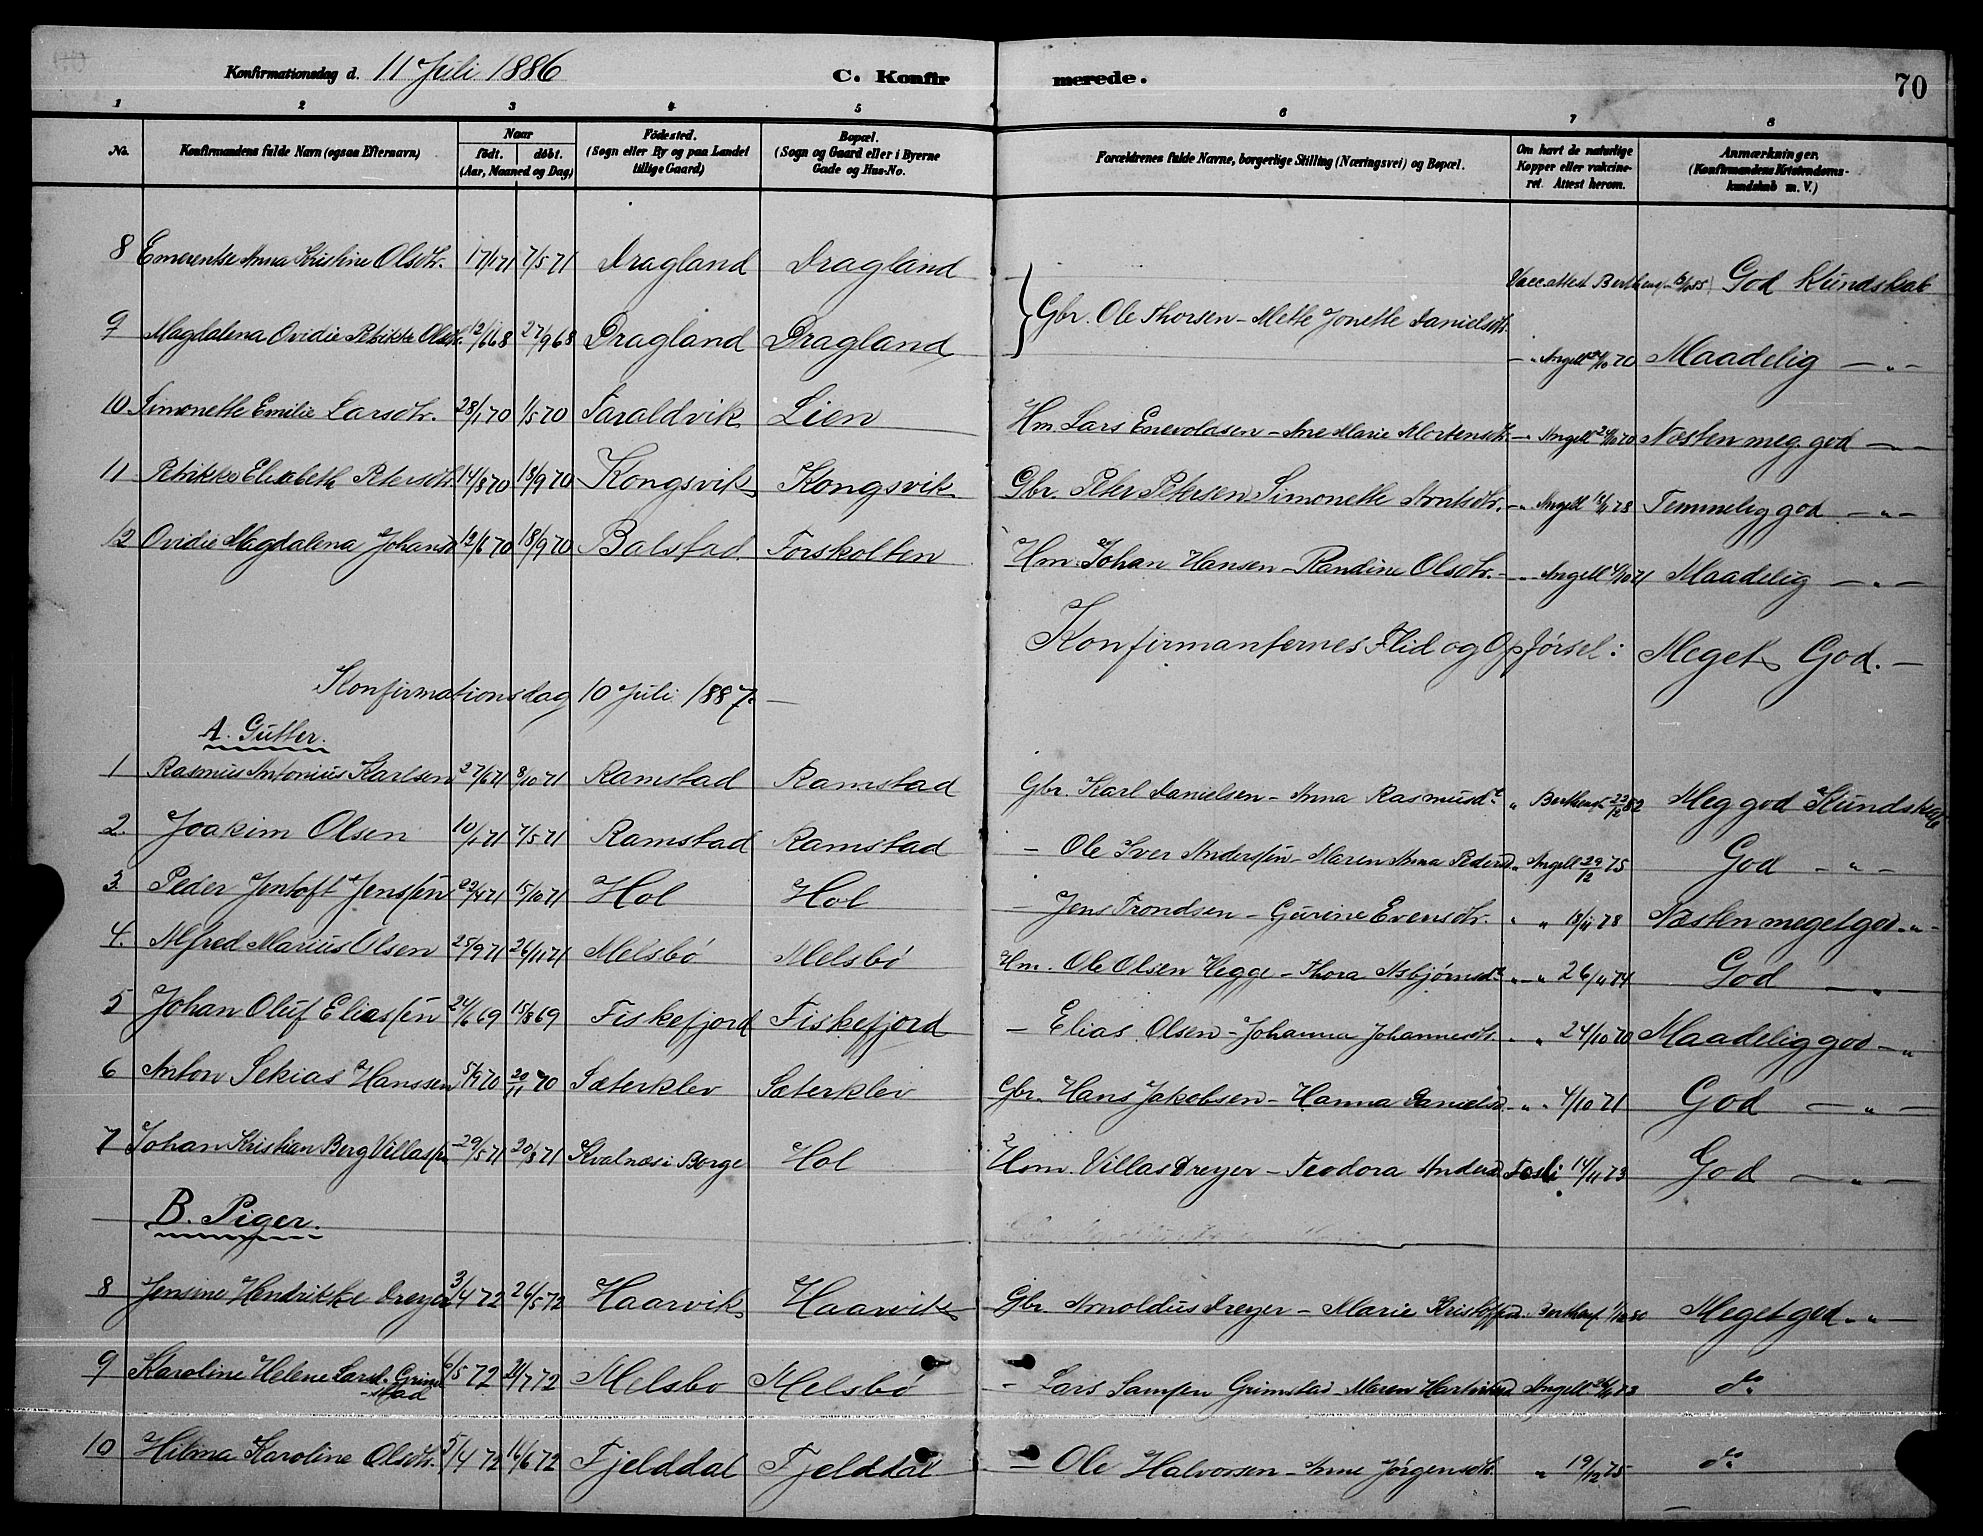 Konfirmationsdag d. 11 Juli 1886 C. Konfirmerede. 70
1 2 3 4 5 6 7 8
No. Konfirmandens fulde Navn (ogsaa Efternavn) Naar født. døbt. (Aar, Maaned og Dag) Fødested. (Sogn eller By og paa Landet tillige Gaard) Bopæl. (Sogn og Gaard eller i Byerne Gade og Hus-No. Forældrenes fulde Navne, borgerlige Stilling (Næringsvei) og Bopæl. Om havt de naturlige Kopper eller vakcineret. Attest herom. Anmærkninger. (Konfirmandens Kristendomskundskab m. V.)
8 Emerentse Anna Kristine Olsdtr. 17/1 71 7/5 71 Dragland Dragland Vacc. attest God Kundskab
Gbr. Ole Thorsen - Mette Jonette Danielsdtr.
9 Magdalena Ovidie Petrikke Olsdtr. 12/6 68 27/9 68 Dragland Dragland - " Angell 24/10 70 Maadelig - " -
10 Simonette Emilie Larsdtr. 28/1 70 1/5 70 Taraldvik Lien Hm. Lars Enevoldsen - Ane Marie Mortensdtr. - " Angell 24/10 70 Næsten meg. god - " -
11 Petrikke Elisabeth Petersdtr. 14/8 70 18/9 70 Kongsvik Kongsvik Gbr. Peter Petersen - Simonette Arntsdtr. - " Angell 18/11 78 Temmelig god - " -
12 Ovidie Magdalena Johansd 12/6 70 18/9 70 Balstad Forskolten Hm. Johan Hansen - Randine Olsdtr. - " Angell 4/10 71 Maadelig - " -
Konfirmanternes Flid og Opførsel: Meget God. -
Konfirmationsdag 10 Juli 1887. -
A. Gutter.
1 Rasmus Antonius Karlsen 27/6 71 8/10 71 Ramstad Ramstad Gbr. Karl Danielsen - Anna Rasmusdt. " 22/12 82 Meg god Kundskab
2. Joakim Olsen 10/1 71 7/5 71 Ramstad Ramstad - Ole Iver Anderssen - Maren Anna Pedersd " Angell 29/12 75 God - " -
3. Peder Jentoft Jenssen 22/4 71 15/10 71 Hol Hol - Jens Trondsen - Gurine Evensdtr. " " 18/11 78 Næsten meget god - " -
4. Alfred Marius Olsen 25/9 71 26/11 71 Melsbø Melsbø Hm. Ole Olsen Hegge - Thora Asbjørnsdt. " - " 26/11 84 God - "
5 Johan Oluf Eliassen 24/6 69 15/8 69 Fiskefjord Fiskefjord - Elias Olsen - Johanna Johannesdtr. " " 24/10 70 Maadelig god - "
6 Anton Sekias Hanssen 5/9 70 20/11 70 Sæterklev Sæterklev Gbr. Hans Jakobsen - Hanna Danielsd. - " " 4/10 71 God - " -
7 Johan Kristian Berg Villassen 29/5 71 20/8 71 Kvalnæs i Borge Hol Hm. Villas Dreyer - Teodora Andersd 14/11 73 God - " -
B. Piger.
8 Jensine Hendrikke Dreyer 3/4 72 26/5 72 Haarvik Haarvik Gbr Arnoldus Dreyer - Marie Kristoffersd. Meget god - " -
9 Karoline Helene Larsd. Grimstad 6/5 72 21/7 72 Melsbø Melsbø - Lars Grimstad - Maren Angell do
10 Hilma Karoline Olsdtr. 5/4 72 16/6 72 Fjelddal Fjelddal - Ole Halvorsen - Anne Jørgensdtr. " 19/12 75 do